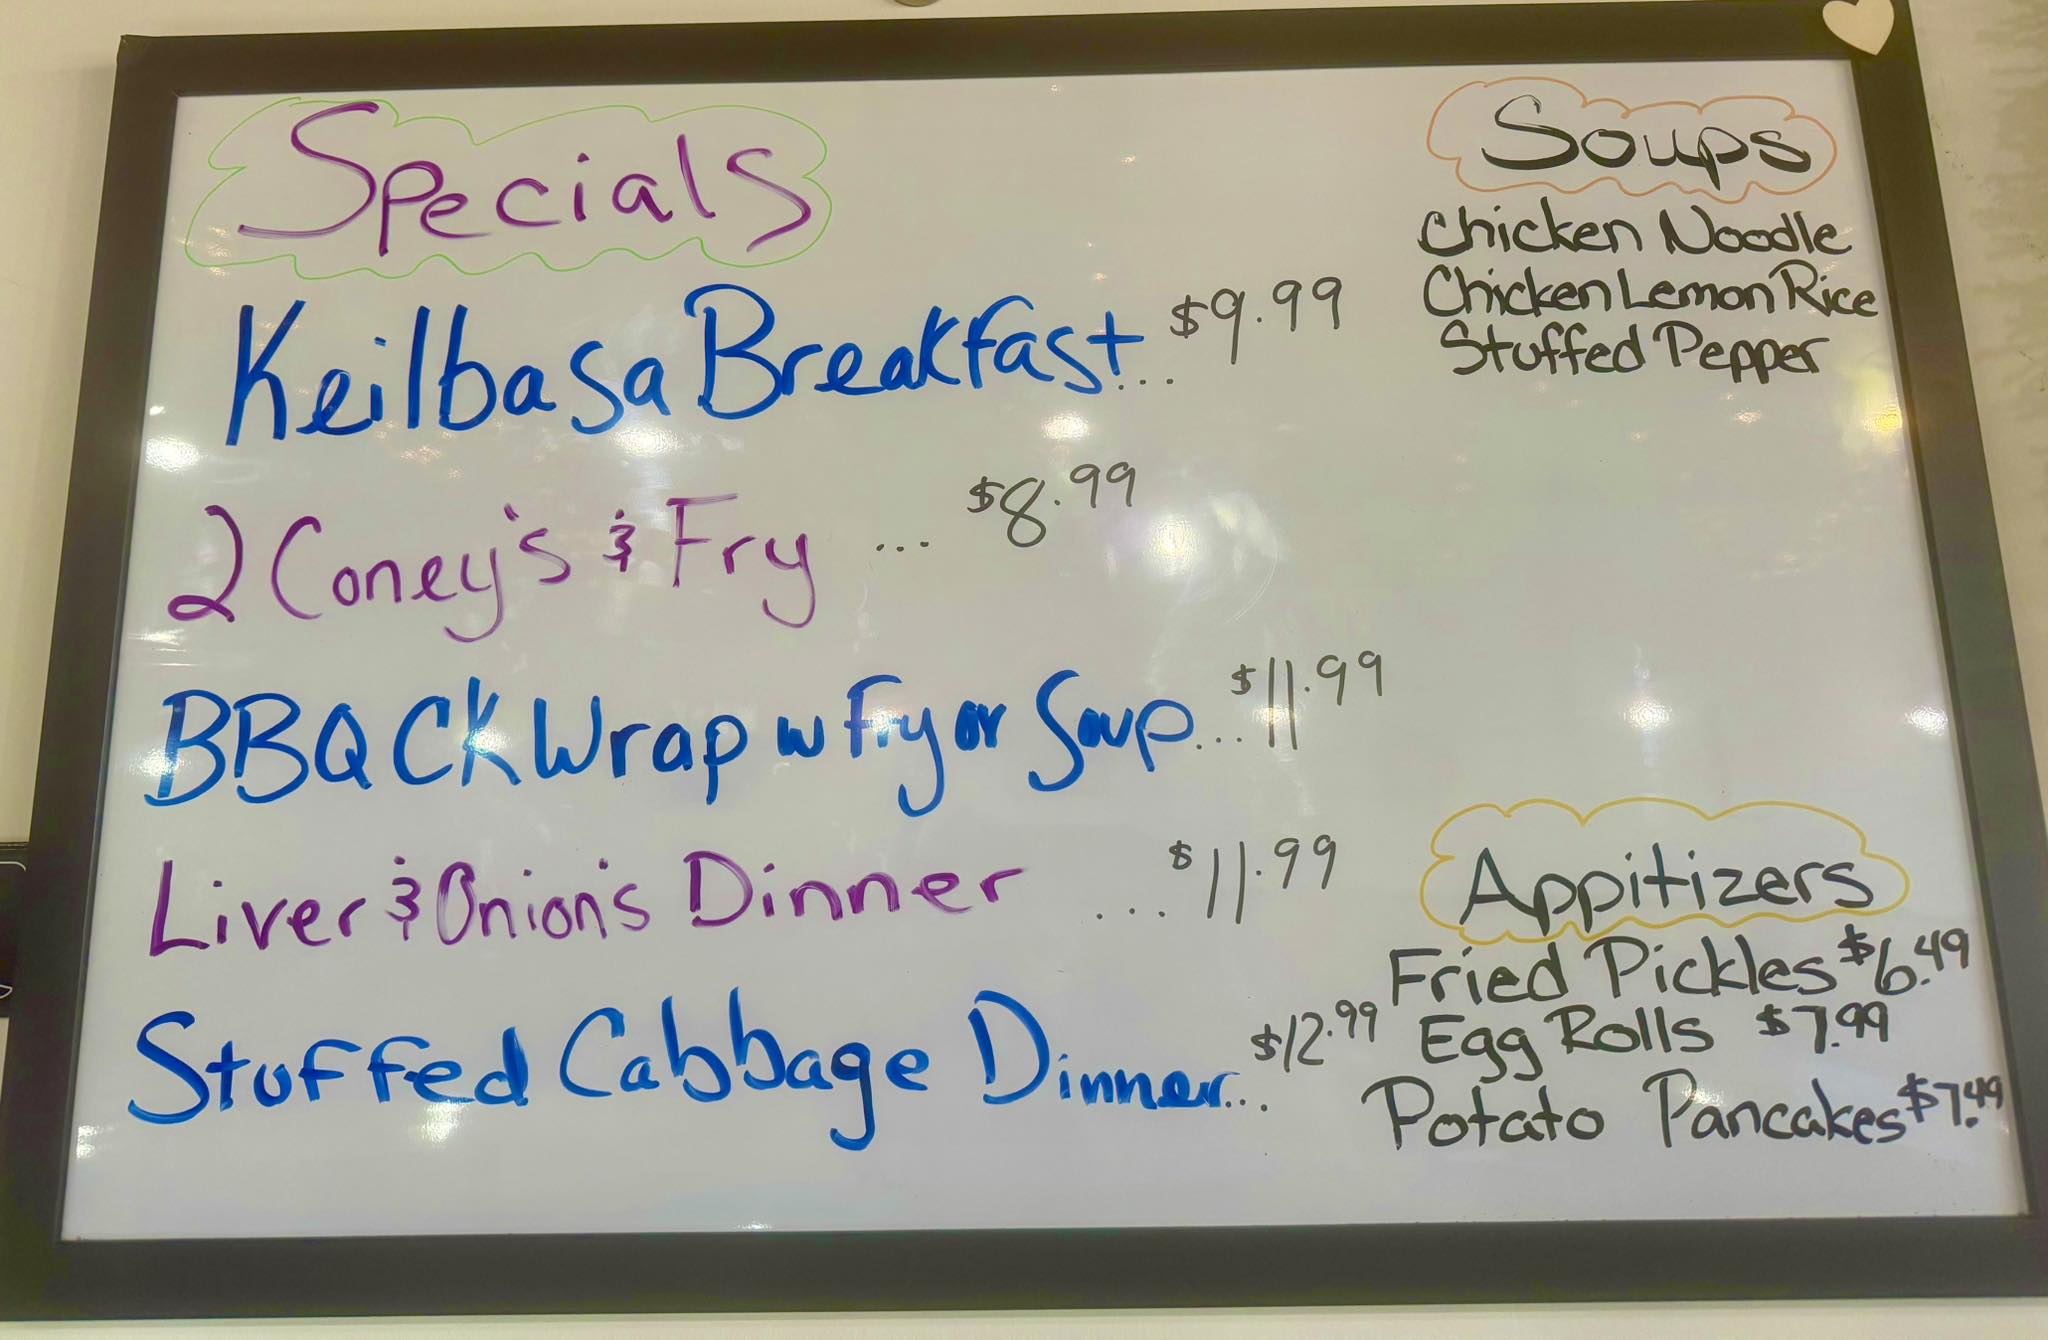 Specials
Keilbasa Breakfast... $9.99
2 Coney's & Fry ... $8.99
BBQ CK Wrap w Fry or Soup... $11.99
Liver & Onion's Dinner ... $11.99
Stuffed Cabbage Dinner... $12.99
Soups
Chicken Noodle
Chicken Lemon Rice
Stuffed Pepper
Appitizers
Fried Pickles $6.49
Egg Rolls $7.99
Potato Pancakes $7.49